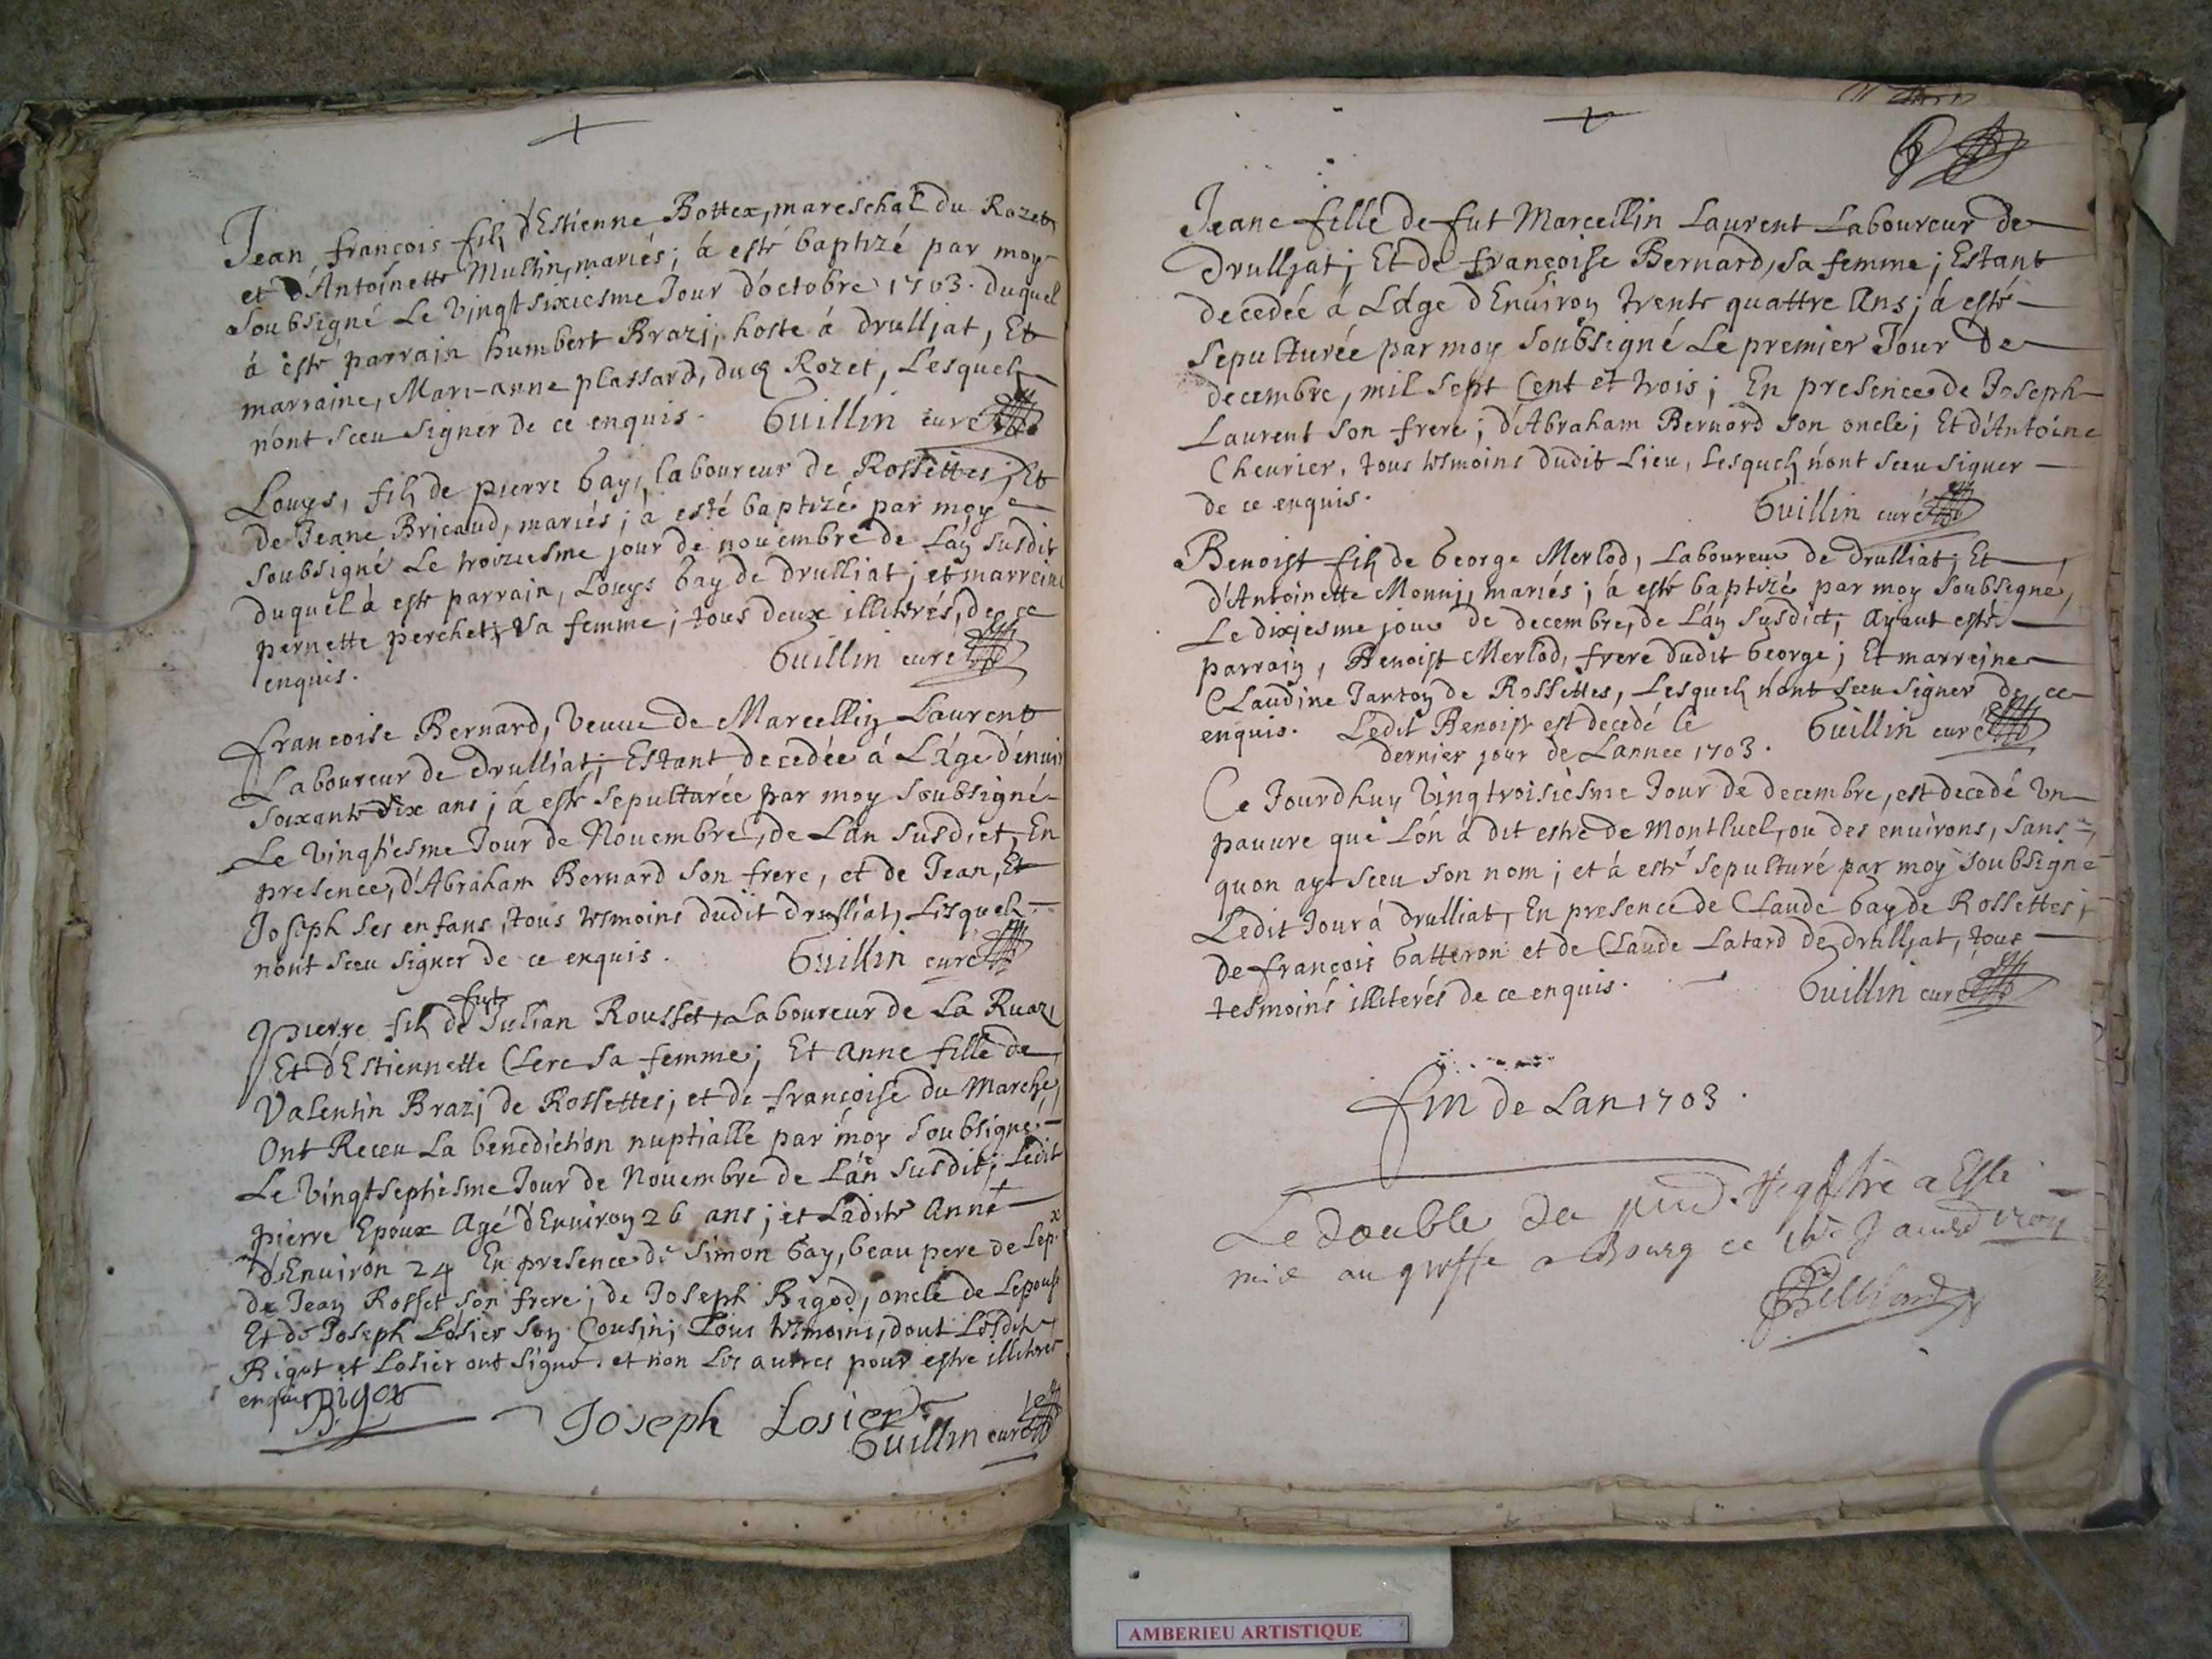 Jean francois filz d'Estienne Bottex, mareschal du Rozet
et d'Antoinette Mullin, mariés; á esté baptizé par moy
soubsigné Le vingtsixiesme Jour d'octobre 1703. duquel
á esté parrain humbert Brazj, hoste á drulljat, Et
marraine, Mari-anne plassard, dud Rozet, Lesquelz
n'ont sceu signer de ce enquis. Guillin curé
Louys, filz de pierre Gay, laboureur de Rossettes; Et
de Jeane Bricaud, mariés; á esté baptizé par moy
soubsigné Le troiziesme jour de novembre de L'an susdit
duquel á esté parrain, Louys Gay de drulliat; et marreine
pernette perchet, sa femme; tous deux illiterés, de ce
enquis. Guillin curé
francoise Bernard, veuve de Marcellin Laurent
Laboureur de drulliat; Estant decedée á L'áge d'envir
soixante dix ans; á esté sepulturée par moy soubsigné
Le vingtiesme Jour de Novembre, de L'an susdict, En
presence, d'Abraham Bernard son frere, et de Jean, Et
Joseph ses enfans, tous tesmoins dudit drulliat, Lesquelz
n'ont sceu signer de ce enquis. Guillin curé
pierre filz de fut Julian Rousset, Laboureur de La Ruazj
Et d'Estiennette Clerc sa femme; Et Anne fille de
Valentin Brazj de Rossettes; et de françoise du Marche,
Ont Receu La benediction nuptialle par moy soubsigné
Le vingtseptiesme Jour de Novembre de L'an susdit; Ledit
pierre Epoux Agé d'Environ 26 ans; et Ladite Anne
d'Environ 24 En presence de Simon Gay, beau pere de Lepx
de Jean Rosset son frere; de Joseph Rigod, oncle de Lepouse
Et de Joseph Losier son Cousin; Tous tesmoins, dont Lesdits
Rigot et Losier ont signé. et non Les autres pour estre illiterés
enquis Rigot
Joseph Losier
Guillin curé
Jeane fille de fut Marcellin Laurent Laboureur de
Drulljat; Et de françoise Bernard, sa femme; Estant
decedée á L'áge d'Environ trente quattre Ans; á esté
sepulturée par moy soubsigné Le premier Jour de
decembre, mil sept Cent et trois; En presence de Joseph
Laurent son frere; d'Abraham Bernard son oncle; Et d'Antoine
Chevrier, tous tesmoins dudit Lieu, Lesquelz n'ont sceu signer
de ce enquis. Guillin curé
Benoist filz de George Merlod, Laboureur de drulliat; Et
d'Antoinette Monnj, mariés; á esté baptizé par moy soubsigné,
Le dixiesme jour de decembre, de L'an susdict; Ayant esté
parrain, Benoist Merlod, frere dudit George; Et marreine
CLaudine Janton de Rossettes, Lesquelz n'ont sceu signer de ce
enquis. Ledit Benoist est decedé le Guillin curé
dernier jour de L'annee 1703.
Ce Jourdhuy vingtroisiesme Jour de decembre, est decedé vn
pauvre que L'on á dit estre de Montluel, ou des environs, sans
quon ayt sceu son nom; et á esté sepulturé par moy soubsigné
Ledit Jour á drulliat, En presence de Claude Gay de Rossettes;
de françois Gatteron et de Claude Latard de drulljat, tous
tesmoins illiterés de ce enquis. Guillin curé
fin de Lan 1703.
Le double du registre a Esté
mis au greffe a Bourg ce
AMBERIEU ARTISTIQUE